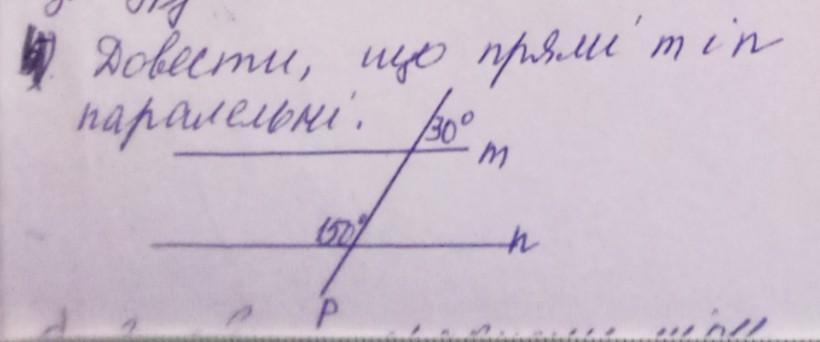 Довести, що прямі m і n
паралельні.
30°
m
150°
n
P